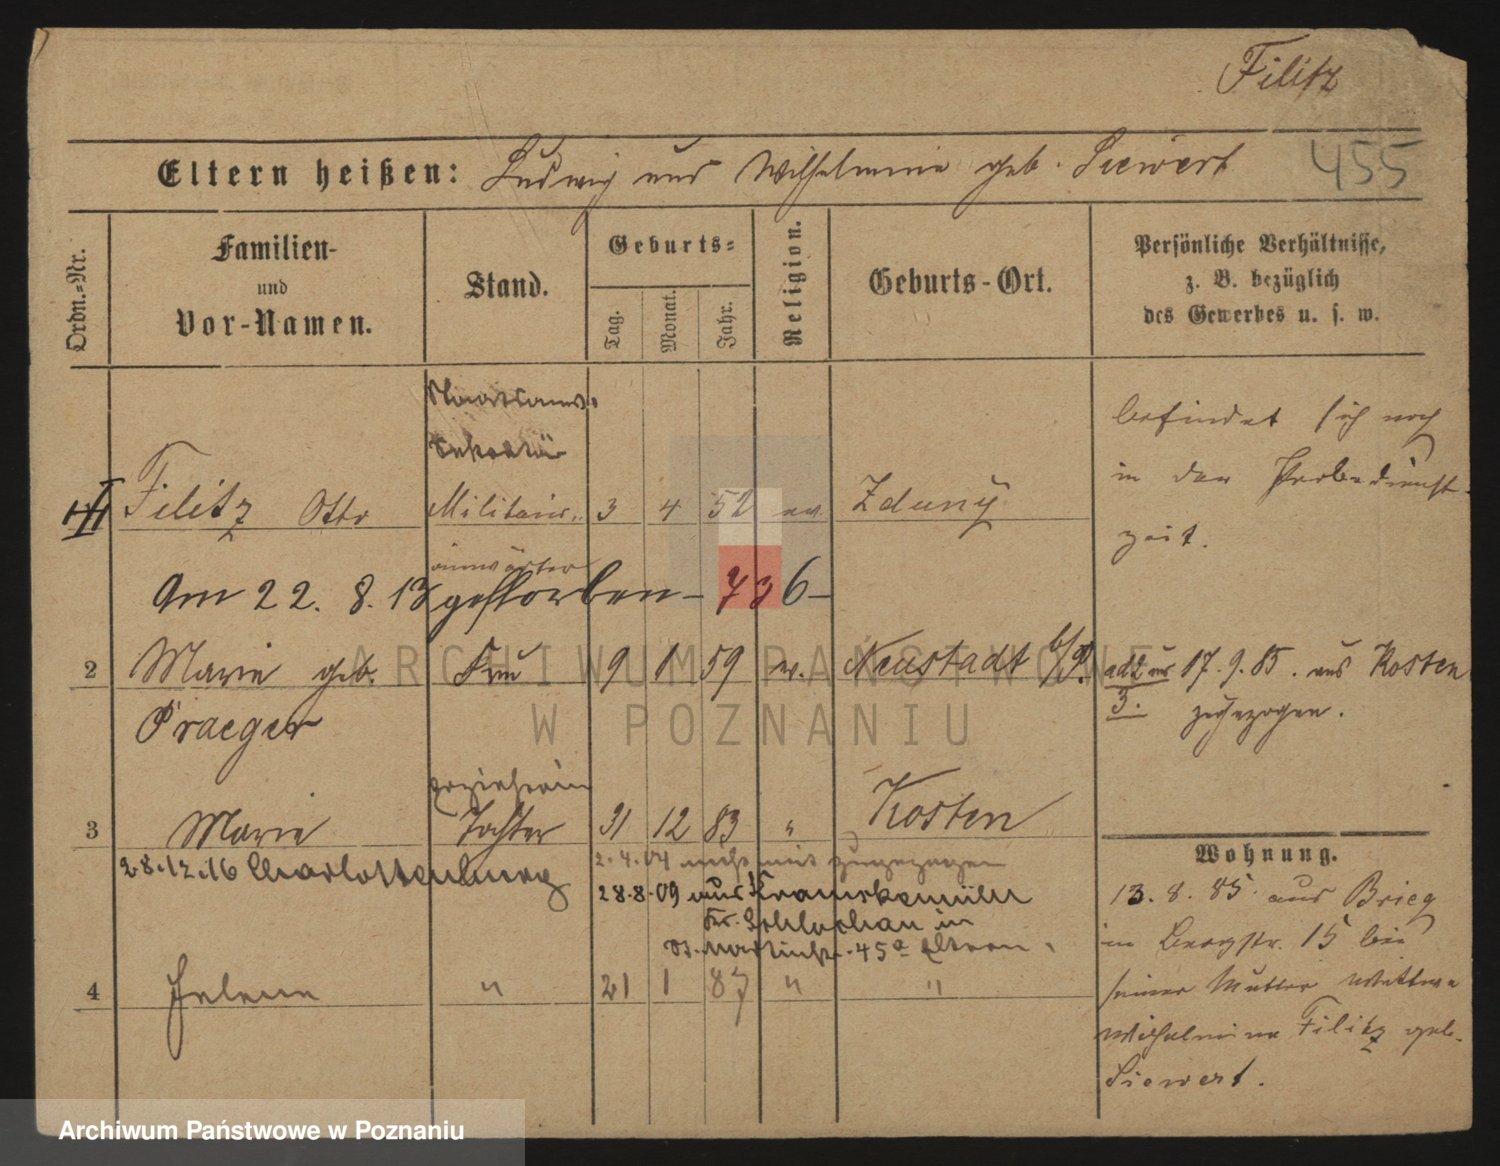 Filitz
Eltern heißen: Ludwig und Wilhelmine geb. Siewert 455
Ordn.=Nr.
Familien-
und
Vor-Namen.
Stand.
Geburts=
Tag.
Monat.
Jahr.
Religion.
Geburts-Ort.
Persönliche Verhältnisse,
z. B. bezüglich
des Gewerbes u. s. w.
Staatsanw.
Sekretär
Filitz Otto Militair- 3 4 52 ev. Zduny
anwärter
befindet sich noch
in der Probedienst-
zeit.
Am 22. 8. 13 gestorben – 736 –
2 Marie geb. Frau 9 1 59 ev. Neustadt b/P.
Praeger
ad 2 und 17. 9. 85. aus Kosten
3. zugezogen.
Erzieherin
3 Marie Tochter 31 12 83 " Kosten
28.12.16 Charlottenburg
2.4.04 nicht mit zugezogen
28.8.09 aus
Kr. Schlochau in
St. Martinstr. 45a Eltern.
4 Helene " 21 1 87 " "
Wohnung.
13. 8. 85. aus Brieg
in Bergstr. 15 bei
seiner Mutter Wittwe
Wilhelmine Filitz geb.
Siewert.
ARCHIWUM PAŃSTWOWE
W POZNANIU
Archiwum Państwowe w Poznaniu